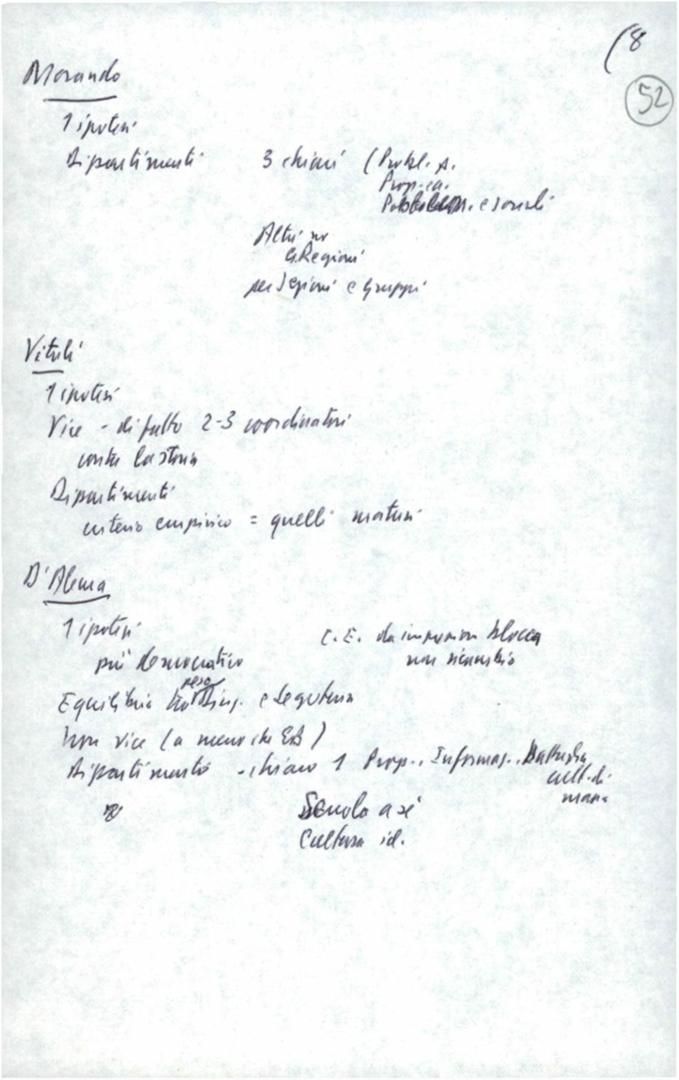 (8
52
Morando
1 ipotesi
Dipartimenti 3 chiari (Probl. p.
Prop.ca.
e sociali
Altri no
G. Regioni
per Regioni e gruppi
Vituli
1 ipotesi
Vice - di fatto 2-3 coordinatori
conta la storia
Dipartimenti
criterio empirico = quelli maturi
D'Alema
1 ipotesi
più democratico
C.E. da impressione blocca
non ricambio
Equilibrio peso e Segreteria
Non vice (a meno che EB)
Dipartimento - chiaro 1 Prop., Informaz., Battaglia
cult. di
massa
no
Scuola a sé
Cultura id.